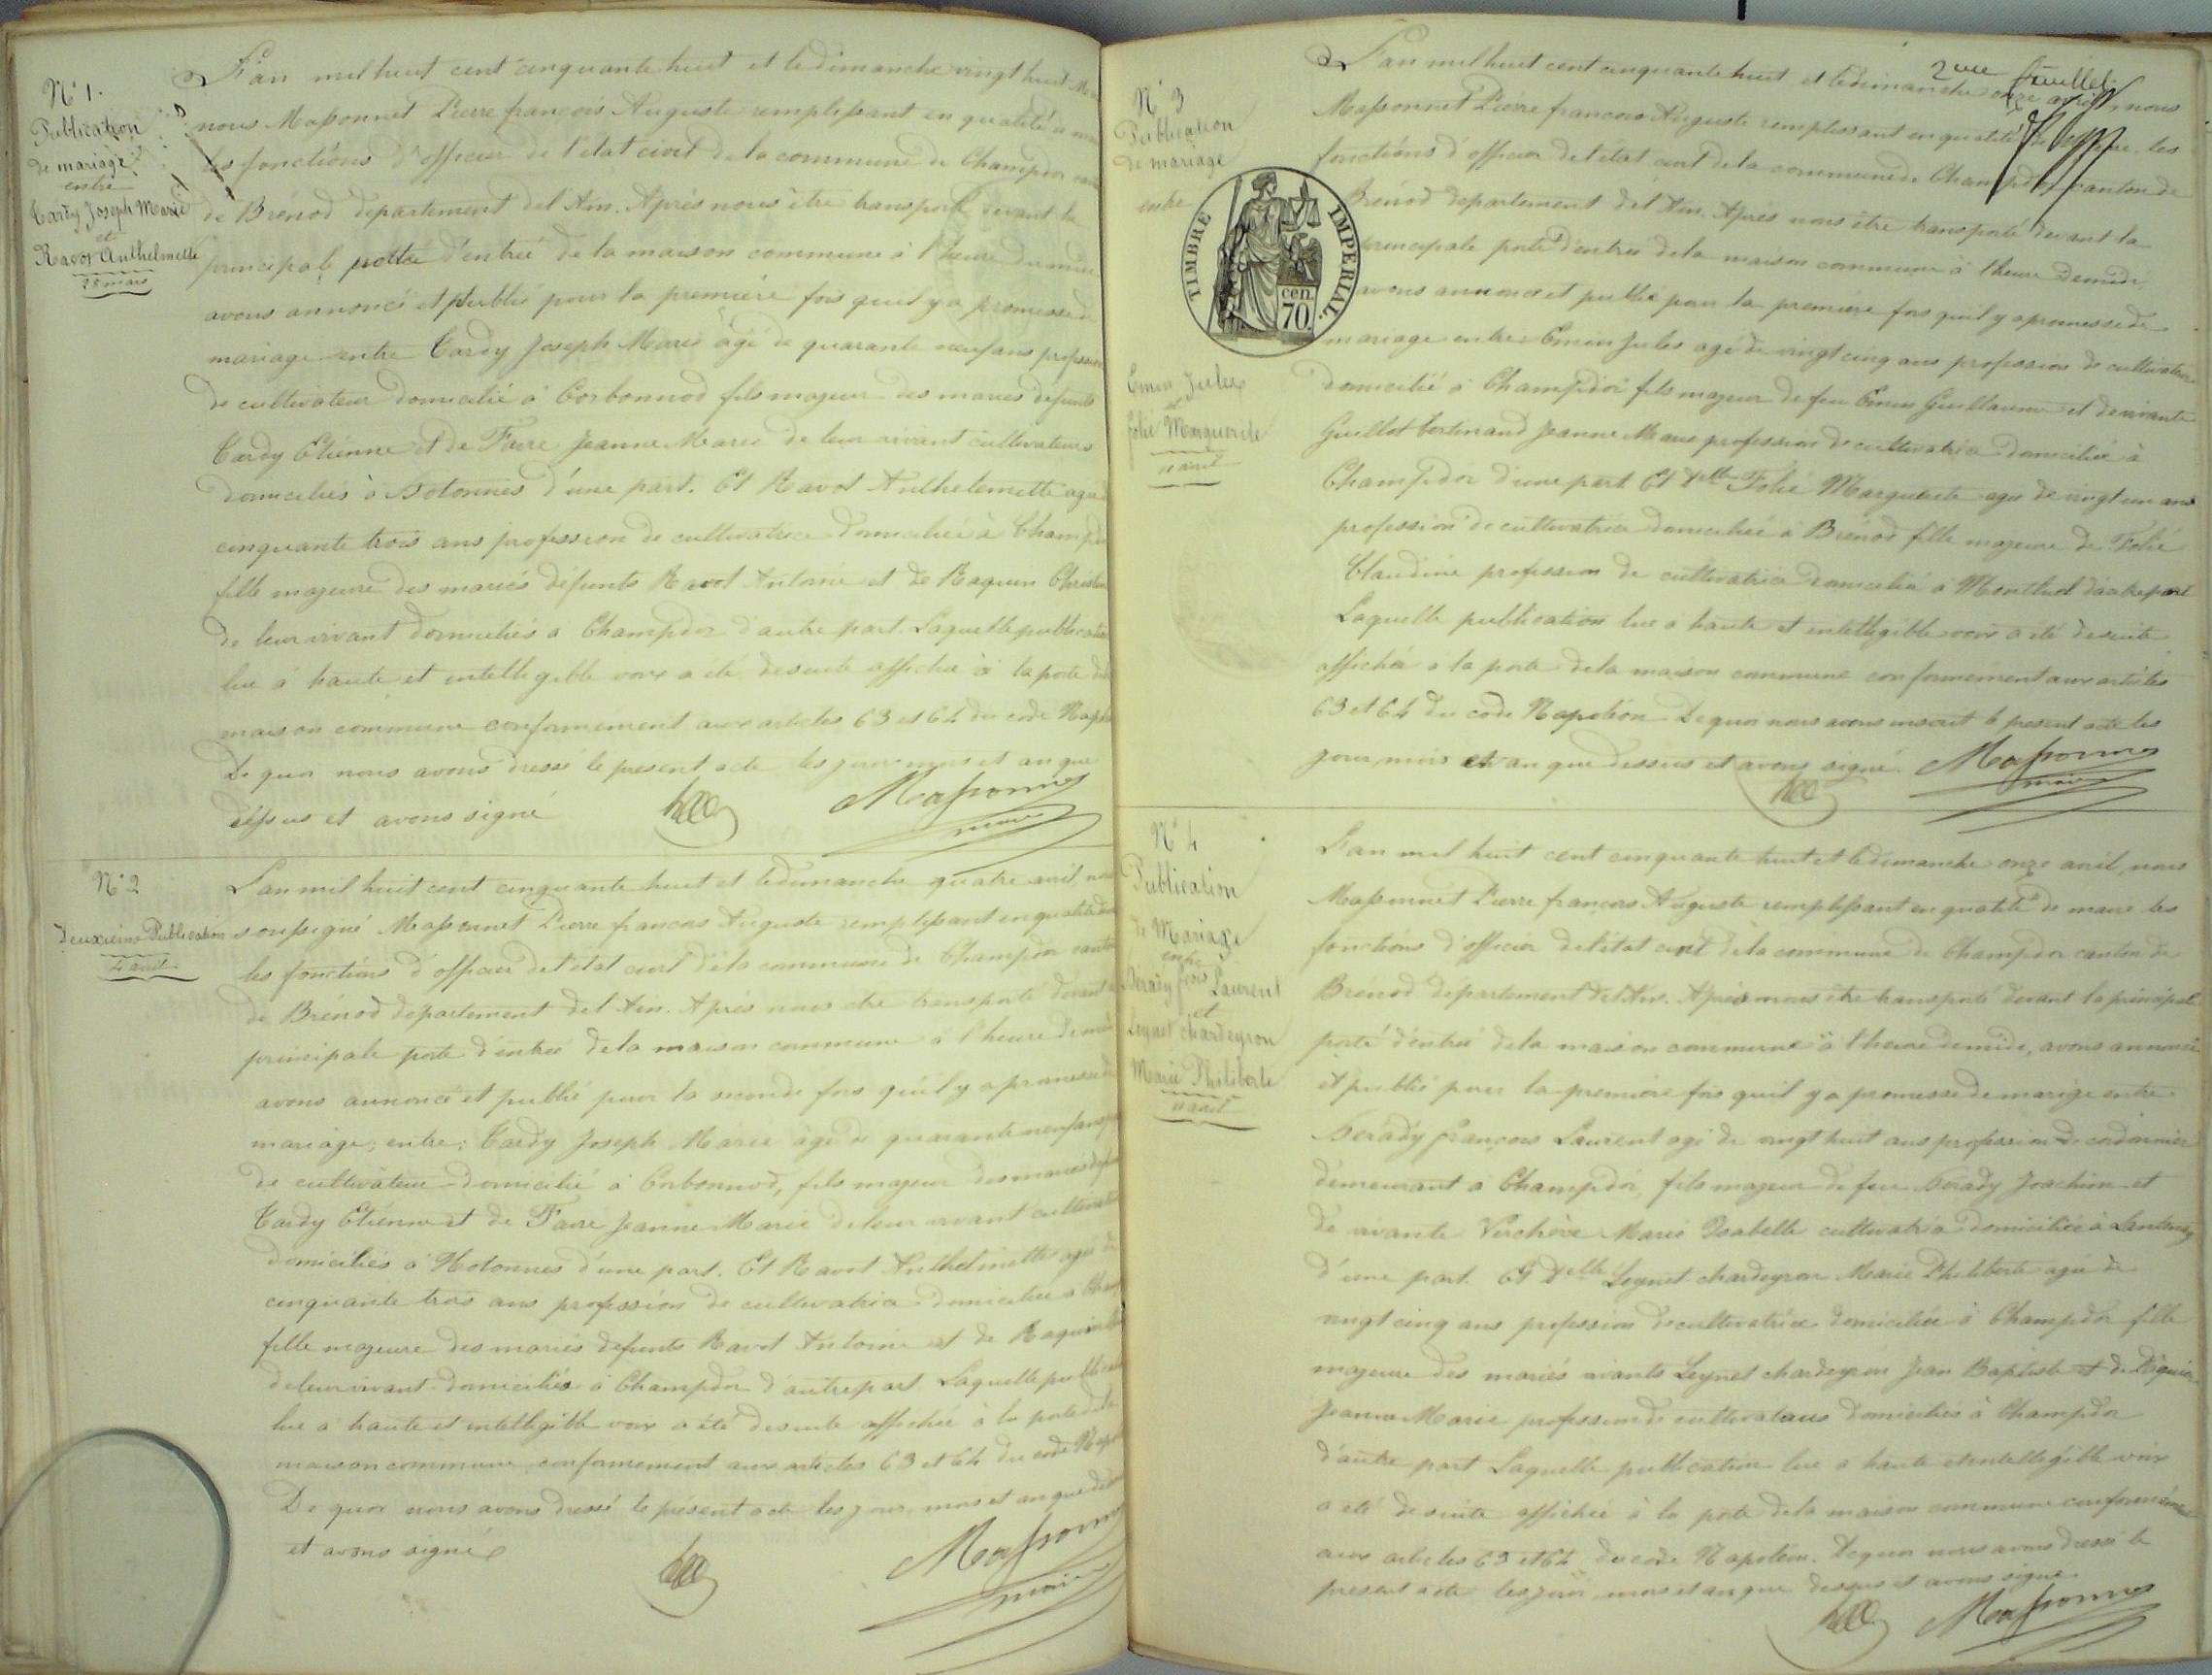 N° 1.
Publication
de mariage
entre
Tardy Joseph Marie
et
Ravot Anthelmette
28 mars
L'an mil huit cent cinquante huit et le dimanche vingt huit
nous Massonnet Pierre françois Auguste remplissant en qualité
les fonctions d'officier de l'état civil de la commune de Champdor
de Brénod département de l'Ain. Après nous être transporté devant la
principale porte d'entrée de la maison commune à l'heure de midi
avons annoncé et publié pour la première fois qu'il y a promesse de
mariage entre Tardy Joseph Marie âgé de quarante neuf ans profession
de cultivateur domicilié à Corbonod fils majeur des mariés défunts
Tardy Etienne et de Favre Jeanne Marie de leur vivant cultivateurs
domiciliés à Hotonnes d'une part. Et Ravot Anthelemette agée
cinquante trois ans profession de cultivatrice domiciliée à Champdor
fille majeure des mariés défunts Ravot Antoine et de Raquin
de leur vivant domiciliés à Champdor d'autre part. Laquelle publication
lue à haute et intelligible voix a été de suite affichée à la porte
maison commune conformément aux articles 63 et 64 du code
De quoi nous avons dressé le présent acte les jour mois et an que
dessus et avons signé
Massonnet
maire
N° 2
deuxième Publication
4 avril
L'an mil huit cent cinquante huit et le dimanche quatre avril
soussigné Massonnet Pierre francois Auguste remplissant en qualité
les fonctions d'officier de l'état civil de la commune de Champdor canton
de Brénod département de l'Ain. Après nous être transporté devant
principale porte d'entrée de la maison commune à l'heure de midi
avons annoncé et publié pour la seconde fois qu'il y a promesse de
mariage, entre: Tardy Joseph Marie âgé de quarante neuf ans
de cultivateur domicilié à Corbonod, fils majeur des mariés défunts
Tardy Etienne et de Favre Jeanne Marie de leur vivant cultivateurs
domiciliés à Hotonnes d'une part. Et Ravot Anthelmette agée de
cinquante trois ans profession de cultivatrice domiciliée à
fille majeure des mariés défunts Ravot Antoine et de Raquin
de leur vivant domiciliés à Champdor d'autre part Laquelle publication
lue à haute et intelligible voix a été de suite affichée à la porte de la
maison commune conformément aux articles 63 et 64 du code
De quoi nous avons dressé le présent acte les jour, mois et an que dessus
et avons signé
Massonnet
maire
2me feuillet
N° 3
Publication
de mariage
entre
TIMBRE IMPERIAL.
cen.
70.
Emin Jules
et
folié Marguerite
11 avril
L'an mil huit cent cinquante huit et le dimanche onze avril, nous
Massonnet Pierre francois Auguste remplissant en qualité de maire les
fonctions d'officier de l'état civil de la commune de Champdor canton de
Brénod département de l'Ain. Après nous être transporté devant la
principale porte d'entrée de la maison commune à l'heure de midi
avons annoncé et publié pour la première fois qu'il y a promesse de
mariage entre: Emin Jules agé de vingt cinq ans profession de cultivateur
domicilié à Champdor fils majeur de feu Emin Guillaume et de vivante
Guillot bertinand Jeanne Marie profession de cultivatrice domiciliée à
Champdor d'une part Et Delle Folié Marguerite agée de vingt un ans
profession de cultivatrice domiciliée à Brénod fille majeure de Folié
Claudine profession de cultivatrice domiciliée à Montluel d'autre part
Laquelle publication lue à haute et intelligible voix a été de suite
affichée à la porte de la maison commune conformément aux articles
63 et 64 du code Napoléon De quoi nous avons inscrit le présent acte les
jour, mois et an que dessus et avons signé.
Massonnet
maire
N° 4
Publication
de Mariage
entre
Sérady fois Laurent
et
Leynet chardeyron
Marie Philiberte
11 avril
L'an mil huit cent cinquante huit et le dimanche onze avril, nous
Massonnet Pierre françois Auguste remplissant en qualité de maire les
fonctions d'officier de l'état civil de la commune de Champdor canton de
Brénod département de l'Ain. Après nous être transporté devant la principale
porte d'entrée de la maison commune à l'heure de midi, avons annoncé
et publié pour la première fois qu'il y a promesse de mariage entre
Sérady françois Laurent agé de vingt huit ans profession de cordonnier
demeurant à Champdor, fils majeur de feu Sérady Joachim et
de vivante Verchère Marie Isabelle cultivatrice domiciliée à Lantenay
d'une part. Et Delle Leynet chardeyron Marie Philiberte agée de
vingt cinq ans profession de cultivatrice domiciliée à Champdor fille
majeure des mariés vivants Leynet chardeyron Jean Baptiste et de
Jeanne Marie profession de cultivateurs domiciliés à Champdor
d'autre part Laquelle publication lue à haute et intelligible voix
a été de suite affichée à la porte de la maison commune conformément
aux articles 63 et 64 du code Napoléon. De quoi nous avons dressé le
présent acte les jour, mois et an que dessus et avons signé.
Massonnet